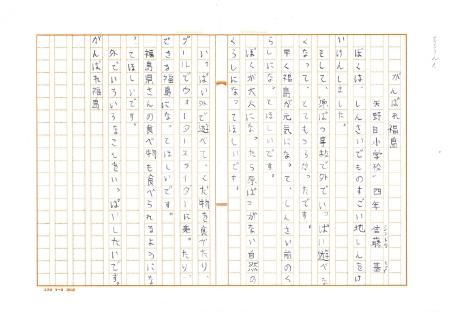 がんばれ福島
矢野目小学校 四年 佐藤
ぼくは、しんさいでものすごい地しんをけ
いけんしました。
そして、原ぱつ事故で外でいっぱい遊べな
くなって、とてもつらかったです。
早く福島が元気になって、しんさい前のく
らしになってほしいです。
ぼくが大人になったら原ぱつがない自然の
くらしになってほしいです。
いっぱい外で遊べて、くだ物を食べたり、
プールでウォータースライダーに乗ったり、
できる福島になってほしいです。
福島県さんの食べ物も食べられるようにな
ってほしいです。
外でいろいろなことをいっぱいしたいです。
がんばれ福島